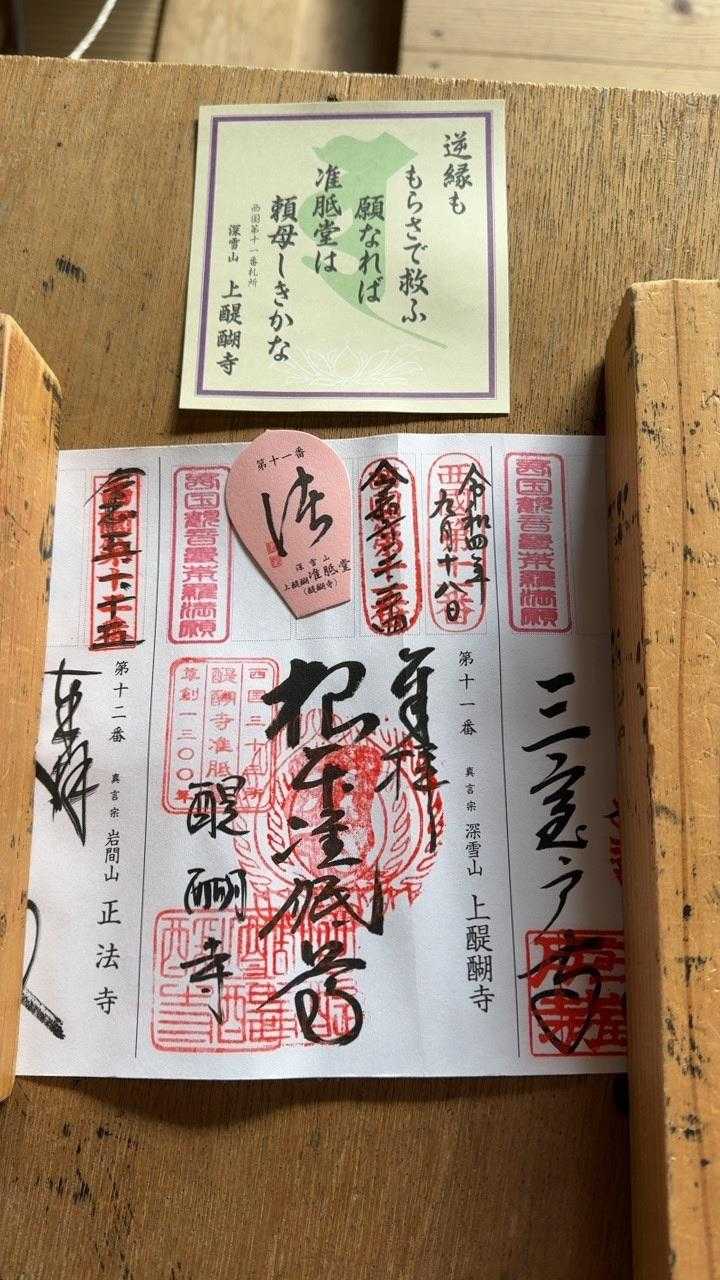 逆縁も
もらさで救ふ
願なれば
准胝堂は
頼母しきかな
西国第十一番札所
深雪山 上醍醐寺
第十一番
法
深雪山
上醍醐 准胝堂
(醍醐寺)
三室戸寺
第十一番 真言宗 深雪山 上醍醐寺
令和四年
九月十八日
奉拝
根本准胝尊
醍醐寺
西国三十三所
醍醐寺准胝
草創一三〇〇年
第十二番 真言宗 岩間山 正法寺
奉拝